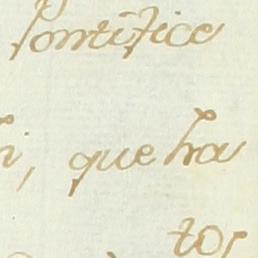 Pontifice
i, que ha
tos